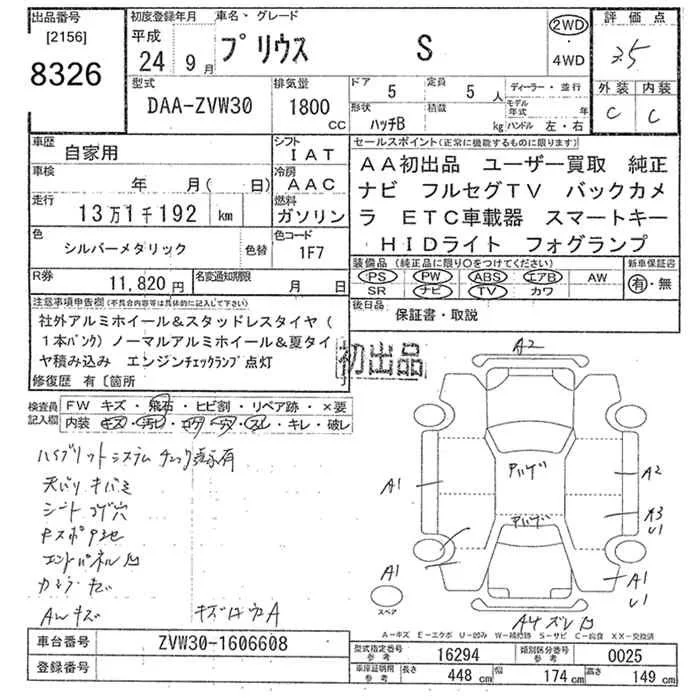 出品番号 初度登録年月 車名・グレード 評価点
[2156]
8326
平成
24 9月 プリウス S 2WD・4WD 3.5
型式 DAA-ZVW30 排気量 1800 CC
ドア 5 定員 5 人 ディーラー・並行
形状 ハッチB 積載 kg モデル年式 年 ハンドル 左・右
外装 C 内装 C
車歴 自家用 シフト IAT
車検 年 月( 日) 冷房 AAC
走行 13万1千192 km 燃料 ガソリン
色 シルバーメタリック 色替 色コード 1F7
R券 11,820円 名変通知期限 月 日
セールスポイント(正常に機能するものに限ります)
AA初出品 ユーザー買取 純正
ナビ フルセグTV バックカメ
ラ ETC車載器 スマートキー
HIDライト フォグランプ
装備品(純正品に限り○をつけてください) 新車保証書
PS PW ABS エアB AW 有・無
SR ナビ TV カワ
後日品 保証書・取説
注意事項申告欄(不具合内容等は具体的に記入して下さい)
社外アルミホイール&スタッドレスタイヤ(
1本パンク)ノーマルアルミホイール&夏タイ
ヤ積み込み エンジンチェックランプ点灯
修復歴 有〔箇所 〕
初出品
検査員記入欄 FW キズ・飛石・ヒビ割・リペア跡・×要
内装 キズ・汚レ・コゲ・穴・スレ・キレ・破レ
ハイブリットシステム チェック表示有
天バリ キバミ
シート コゲ穴
エンドパネル凹
AWキズ
A2
A1
A2
A3
U1
A1
U1
A1
スペア
A-キズ E-エクボ U-凹み W-補修跡 S-サビ C-腐食 XX-交換済
車台番号 ZVW30-1606608
登録番号
型式指定番号 参考 16294 類別区分番号 参考 0025
車庫証明用 参考 長さ 448 cm 幅 174 cm 高さ 149 cm